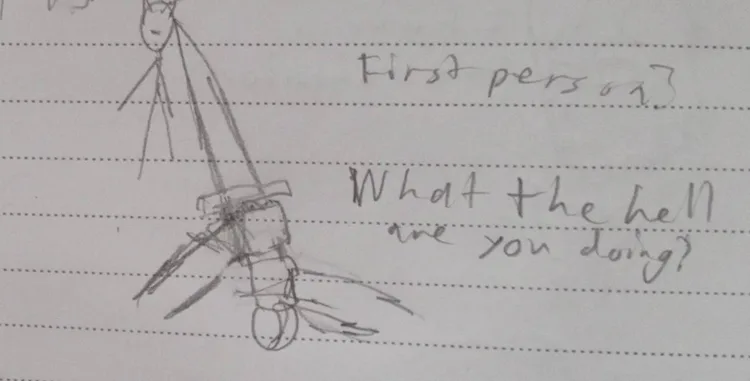 First person?
What the hell
are you doing?